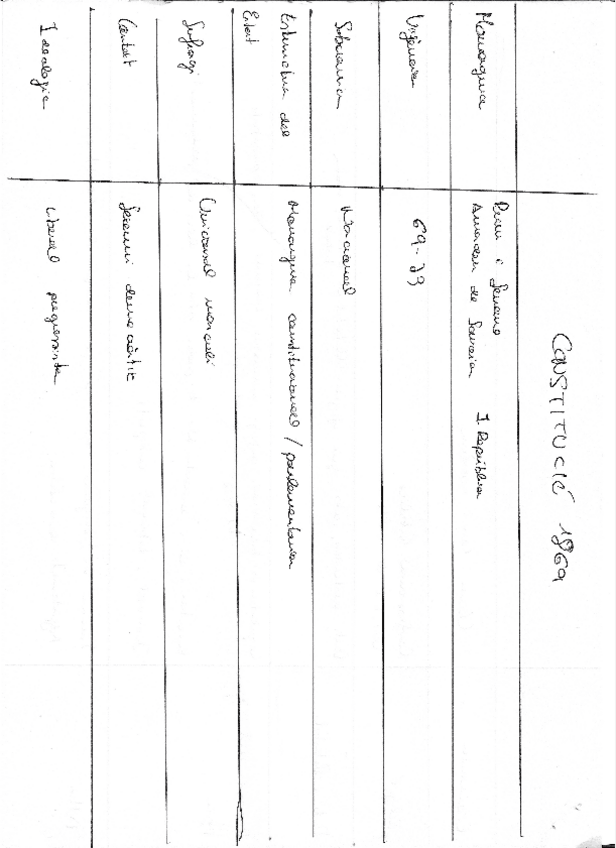 CONSTITUCIÓ 1869
Monarquia
Prim i Serrano
Amadeu de Savoia I República
Vigència
69-73
Sobirania
Nacional
Estructura del
Estat
Monarquia constitucional / parlamentaria
Sufragi
Universal masculí
Context
Sexenni democràtic
Ideologia
Liberal progressista